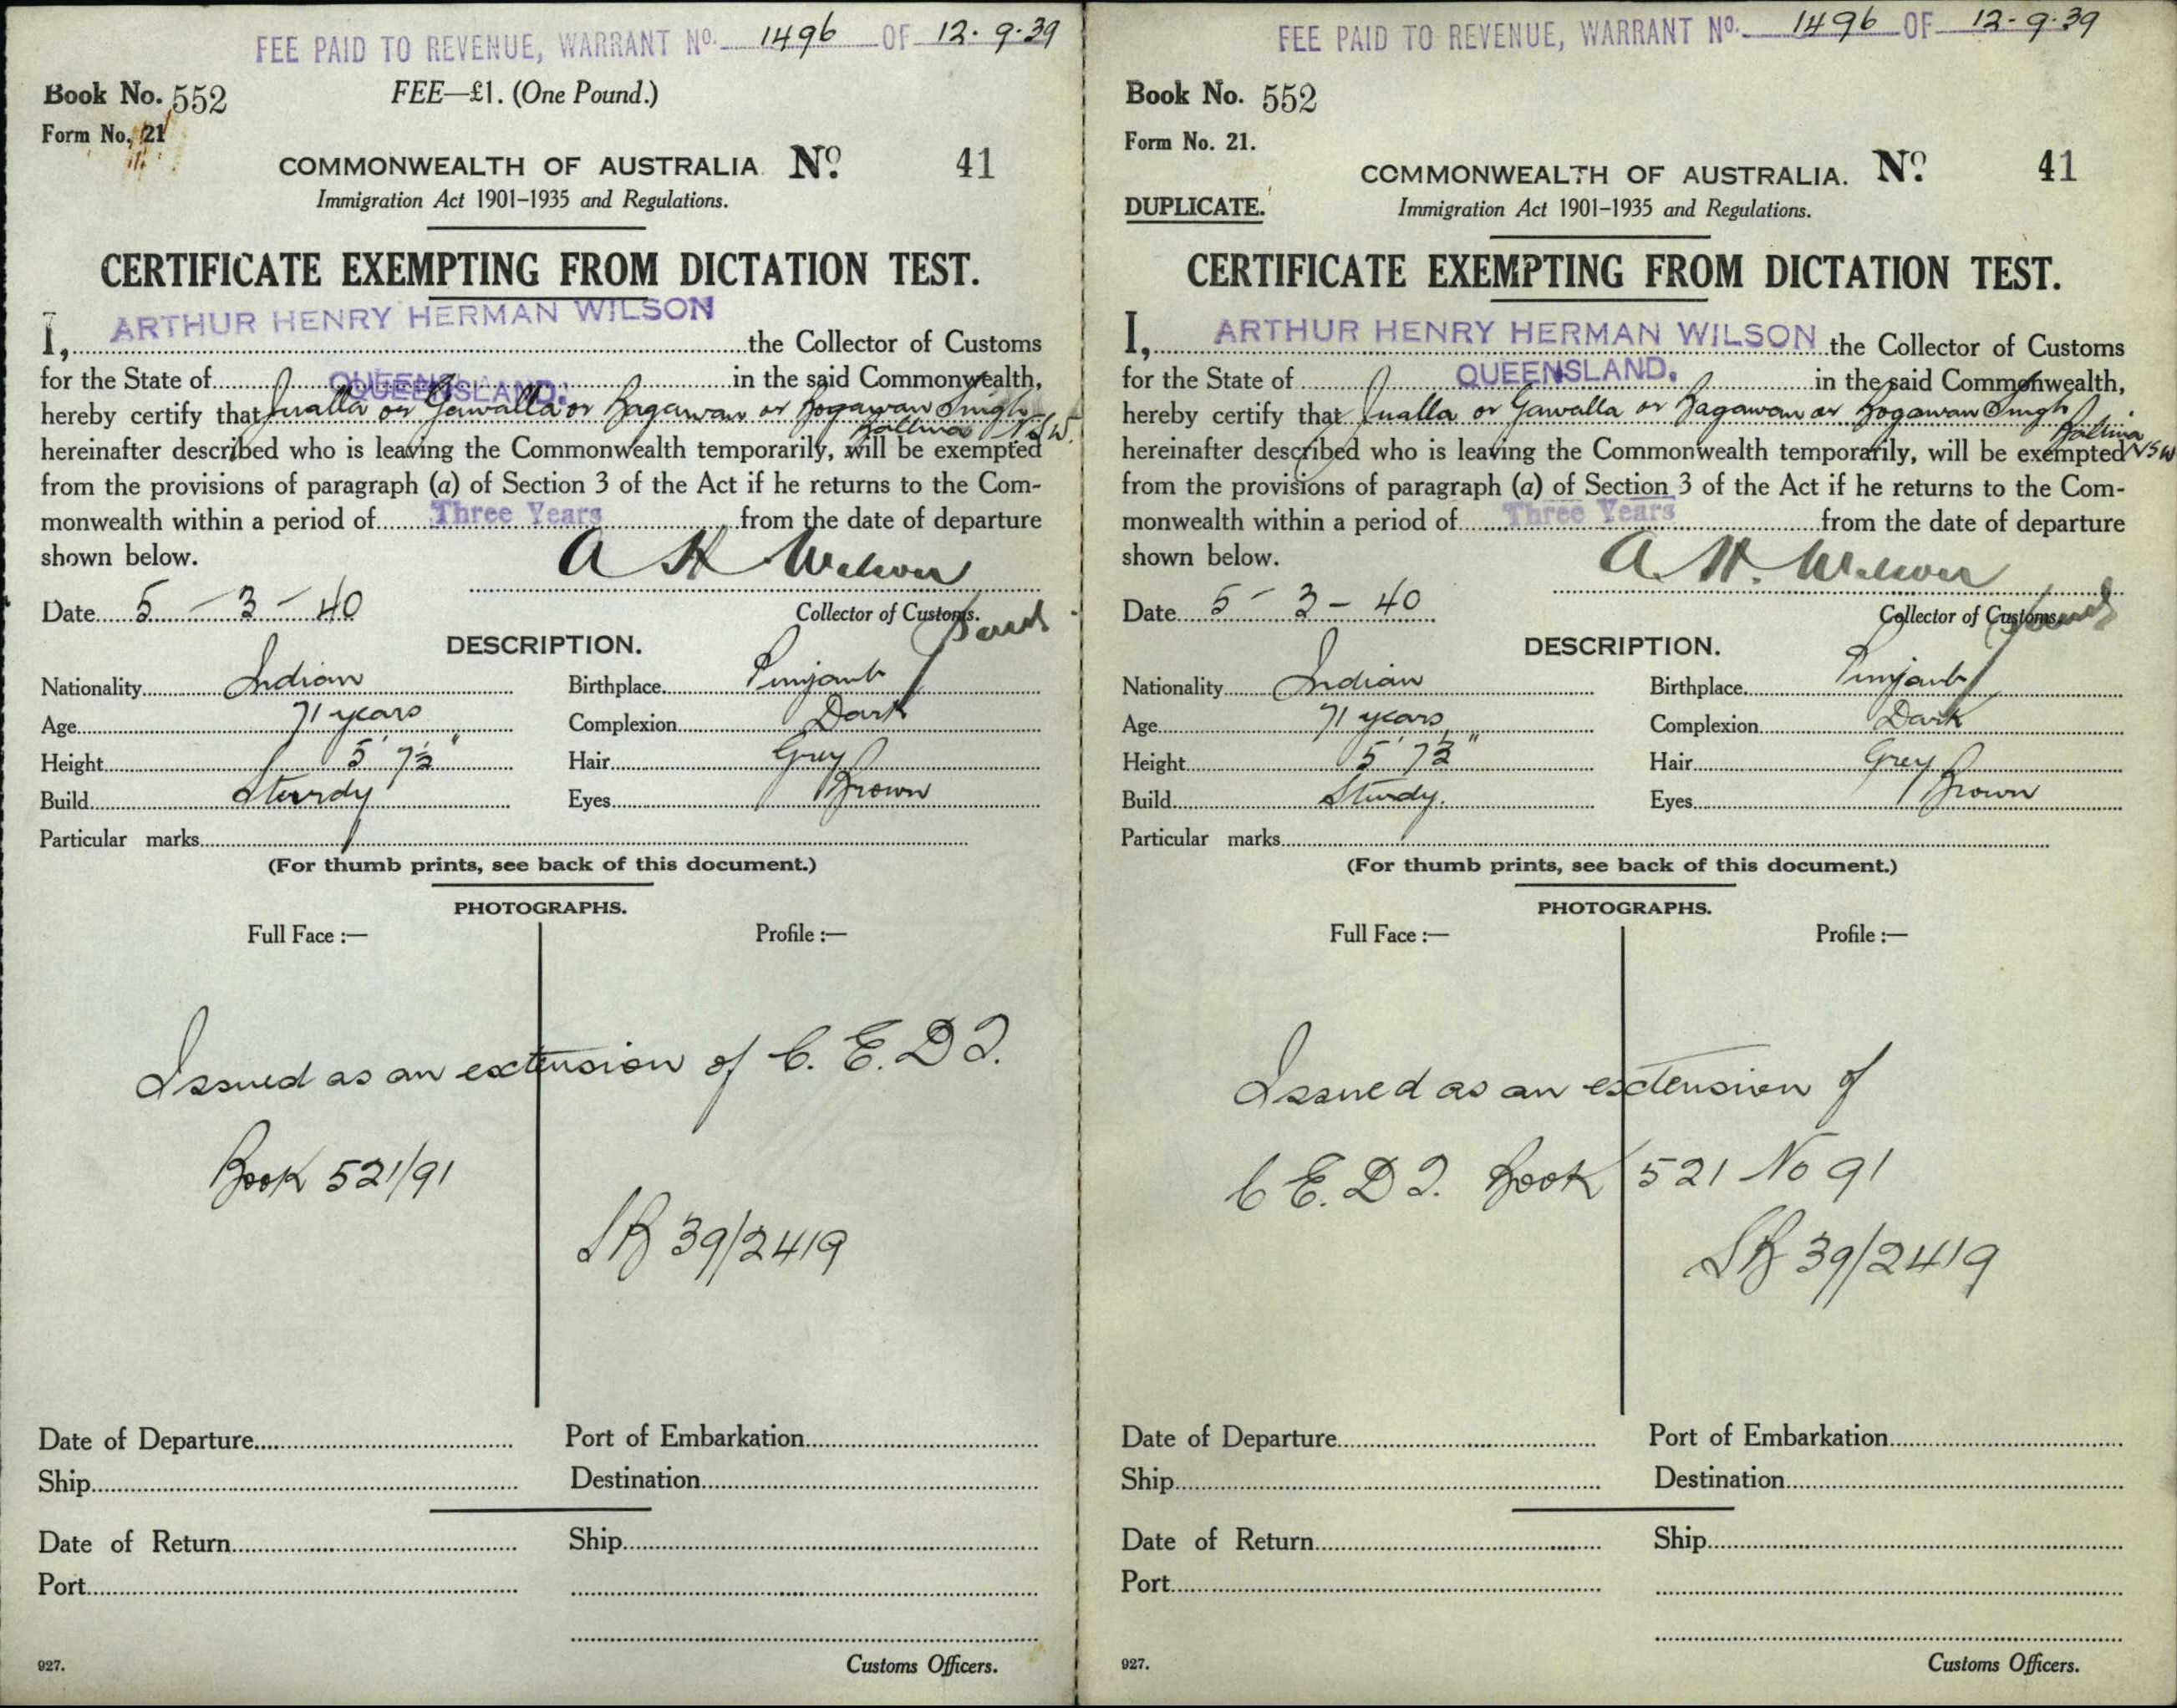 FEE PAID TO REVENUE, WARRANT No. 1496 OF 12.9.39
Book No. 552 FEE—£1. (One Pound.)
Form No. 21
COMMONWEALTH OF AUSTRALIA No. 41
Immigration Act 1901-1935 and Regulations.
CERTIFICATE EXEMPTING FROM DICTATION TEST.
ARTHUR HENRY HERMAN WILSON
I, the Collector of Customs
for the State of QUEENSLAND. in the said Commonwealth,
hereby certify that Jualla or Gawalla or Bagawan or Bogawan Singh
Ballina NSW.
hereinafter described who is leaving the Commonwealth temporarily, will be exempted
from the provisions of paragraph (a) of Section 3 of the Act if he returns to the Com-
monwealth within a period of Three Years from the date of departure
shown below.
A H Wilson
Date 5 - 3 - 40 Collector of Customs.
DESCRIPTION.
Nationality Indian Birthplace Punjaub
Age 71 years Complexion Dark
Height 5' 7½" Hair Grey
Build Sturdy Eyes Brown
Particular marks
(For thumb prints, see back of this document.)
PHOTOGRAPHS.
Full Face :— Profile :—
Issued as an extension of C. E. D T.
Book 521/91
SB 39/2419
Date of Departure Port of Embarkation
Ship Destination
Date of Return Ship
Port
927. Customs Officers.
FEE PAID TO REVENUE, WARRANT No. 1496 OF 12-9-39
Book No. 552
Form No. 21.
COMMONWEALTH OF AUSTRALIA. No. 41
DUPLICATE. Immigration Act 1901-1935 and Regulations.
CERTIFICATE EXEMPTING FROM DICTATION TEST.
I, ARTHUR HENRY HERMAN WILSON the Collector of Customs
for the State of QUEENSLAND. in the said Commonwealth,
hereby certify that Jualla or Gawalla or Bagawan or Bogawan Singh
Ballina NSW
hereinafter described who is leaving the Commonwealth temporarily, will be exempted
from the provisions of paragraph (a) of Section 3 of the Act if he returns to the Com-
monwealth within a period of Three Years from the date of departure
shown below.
A. H. Wilson
Date 5 - 3 - 40 Collector of Customs.
DESCRIPTION.
Nationality Indian Birthplace Punjaub
Age 71 years Complexion Dark
Height 5' 7½" Hair Grey
Build Sturdy. Eyes Brown
Particular marks
(For thumb prints, see back of this document.)
PHOTOGRAPHS.
Full Face :— Profile :—
Issued as an extension of
C E. D T. Book 521 No 91
SB 39/2419
Date of Departure Port of Embarkation
Ship Destination
Date of Return Ship
Port
927. Customs Officers.